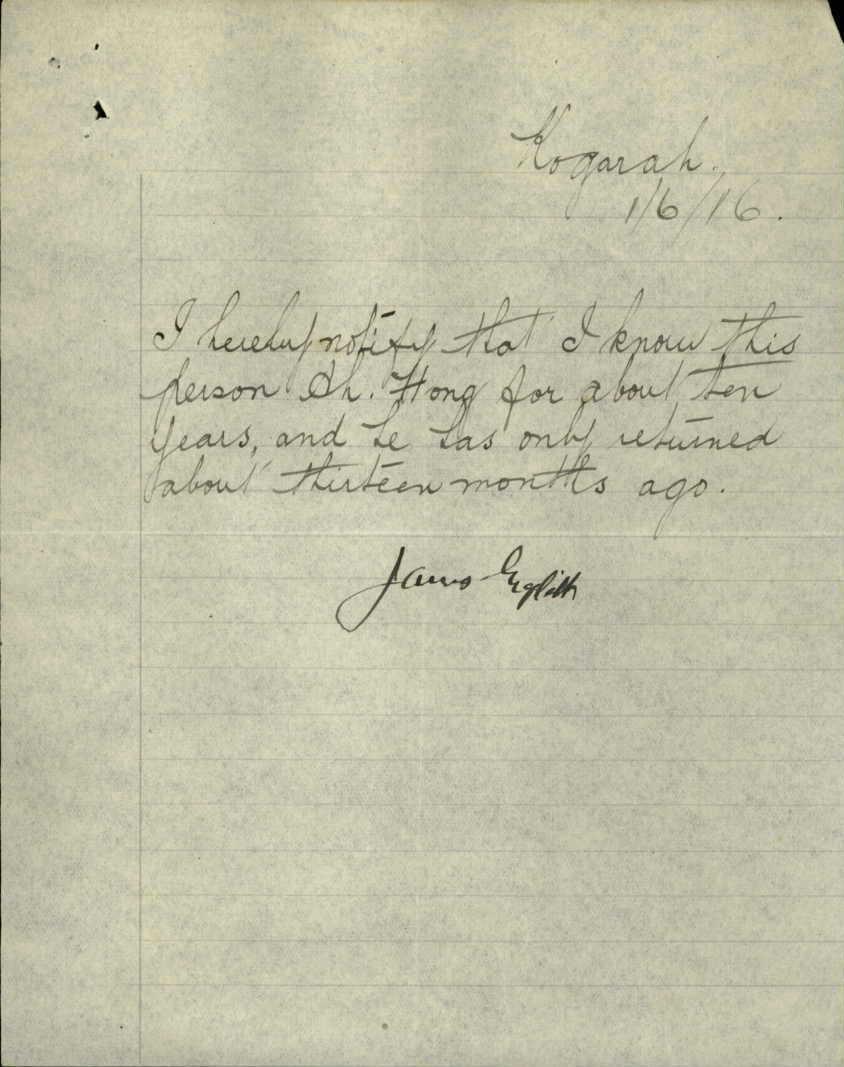 Kogarah.
1/6/16.
I hereby notify that I know this
person Ah. Hong for about ten
years, and he has only returned
about thirteen months ago.
James